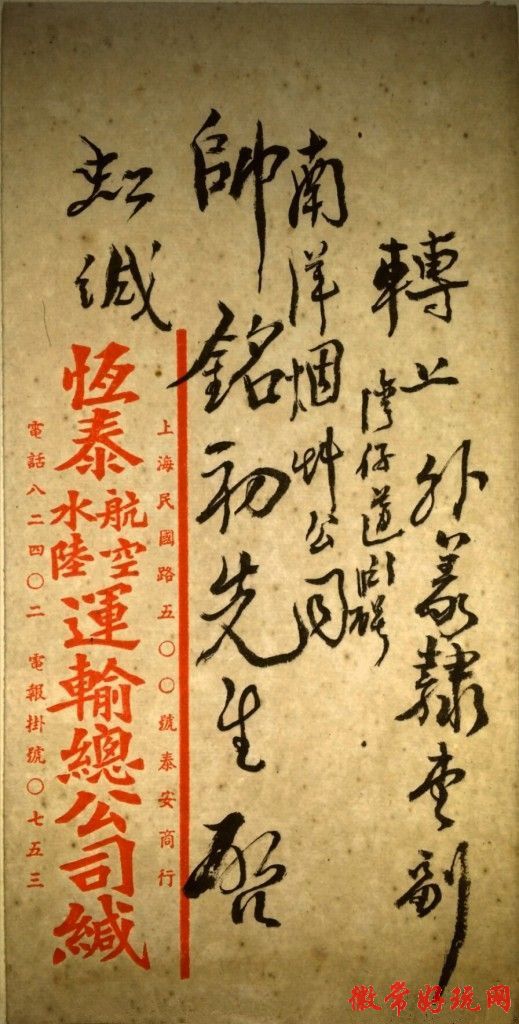 轉上外
灣仔道
南洋烟艸公司
帥銘初先生啓
緘
上海民國路五〇〇號泰安商行
恆泰航空水陸運輸總公司緘
電話八二四〇二 電報掛號〇七五三
徽常好玩网